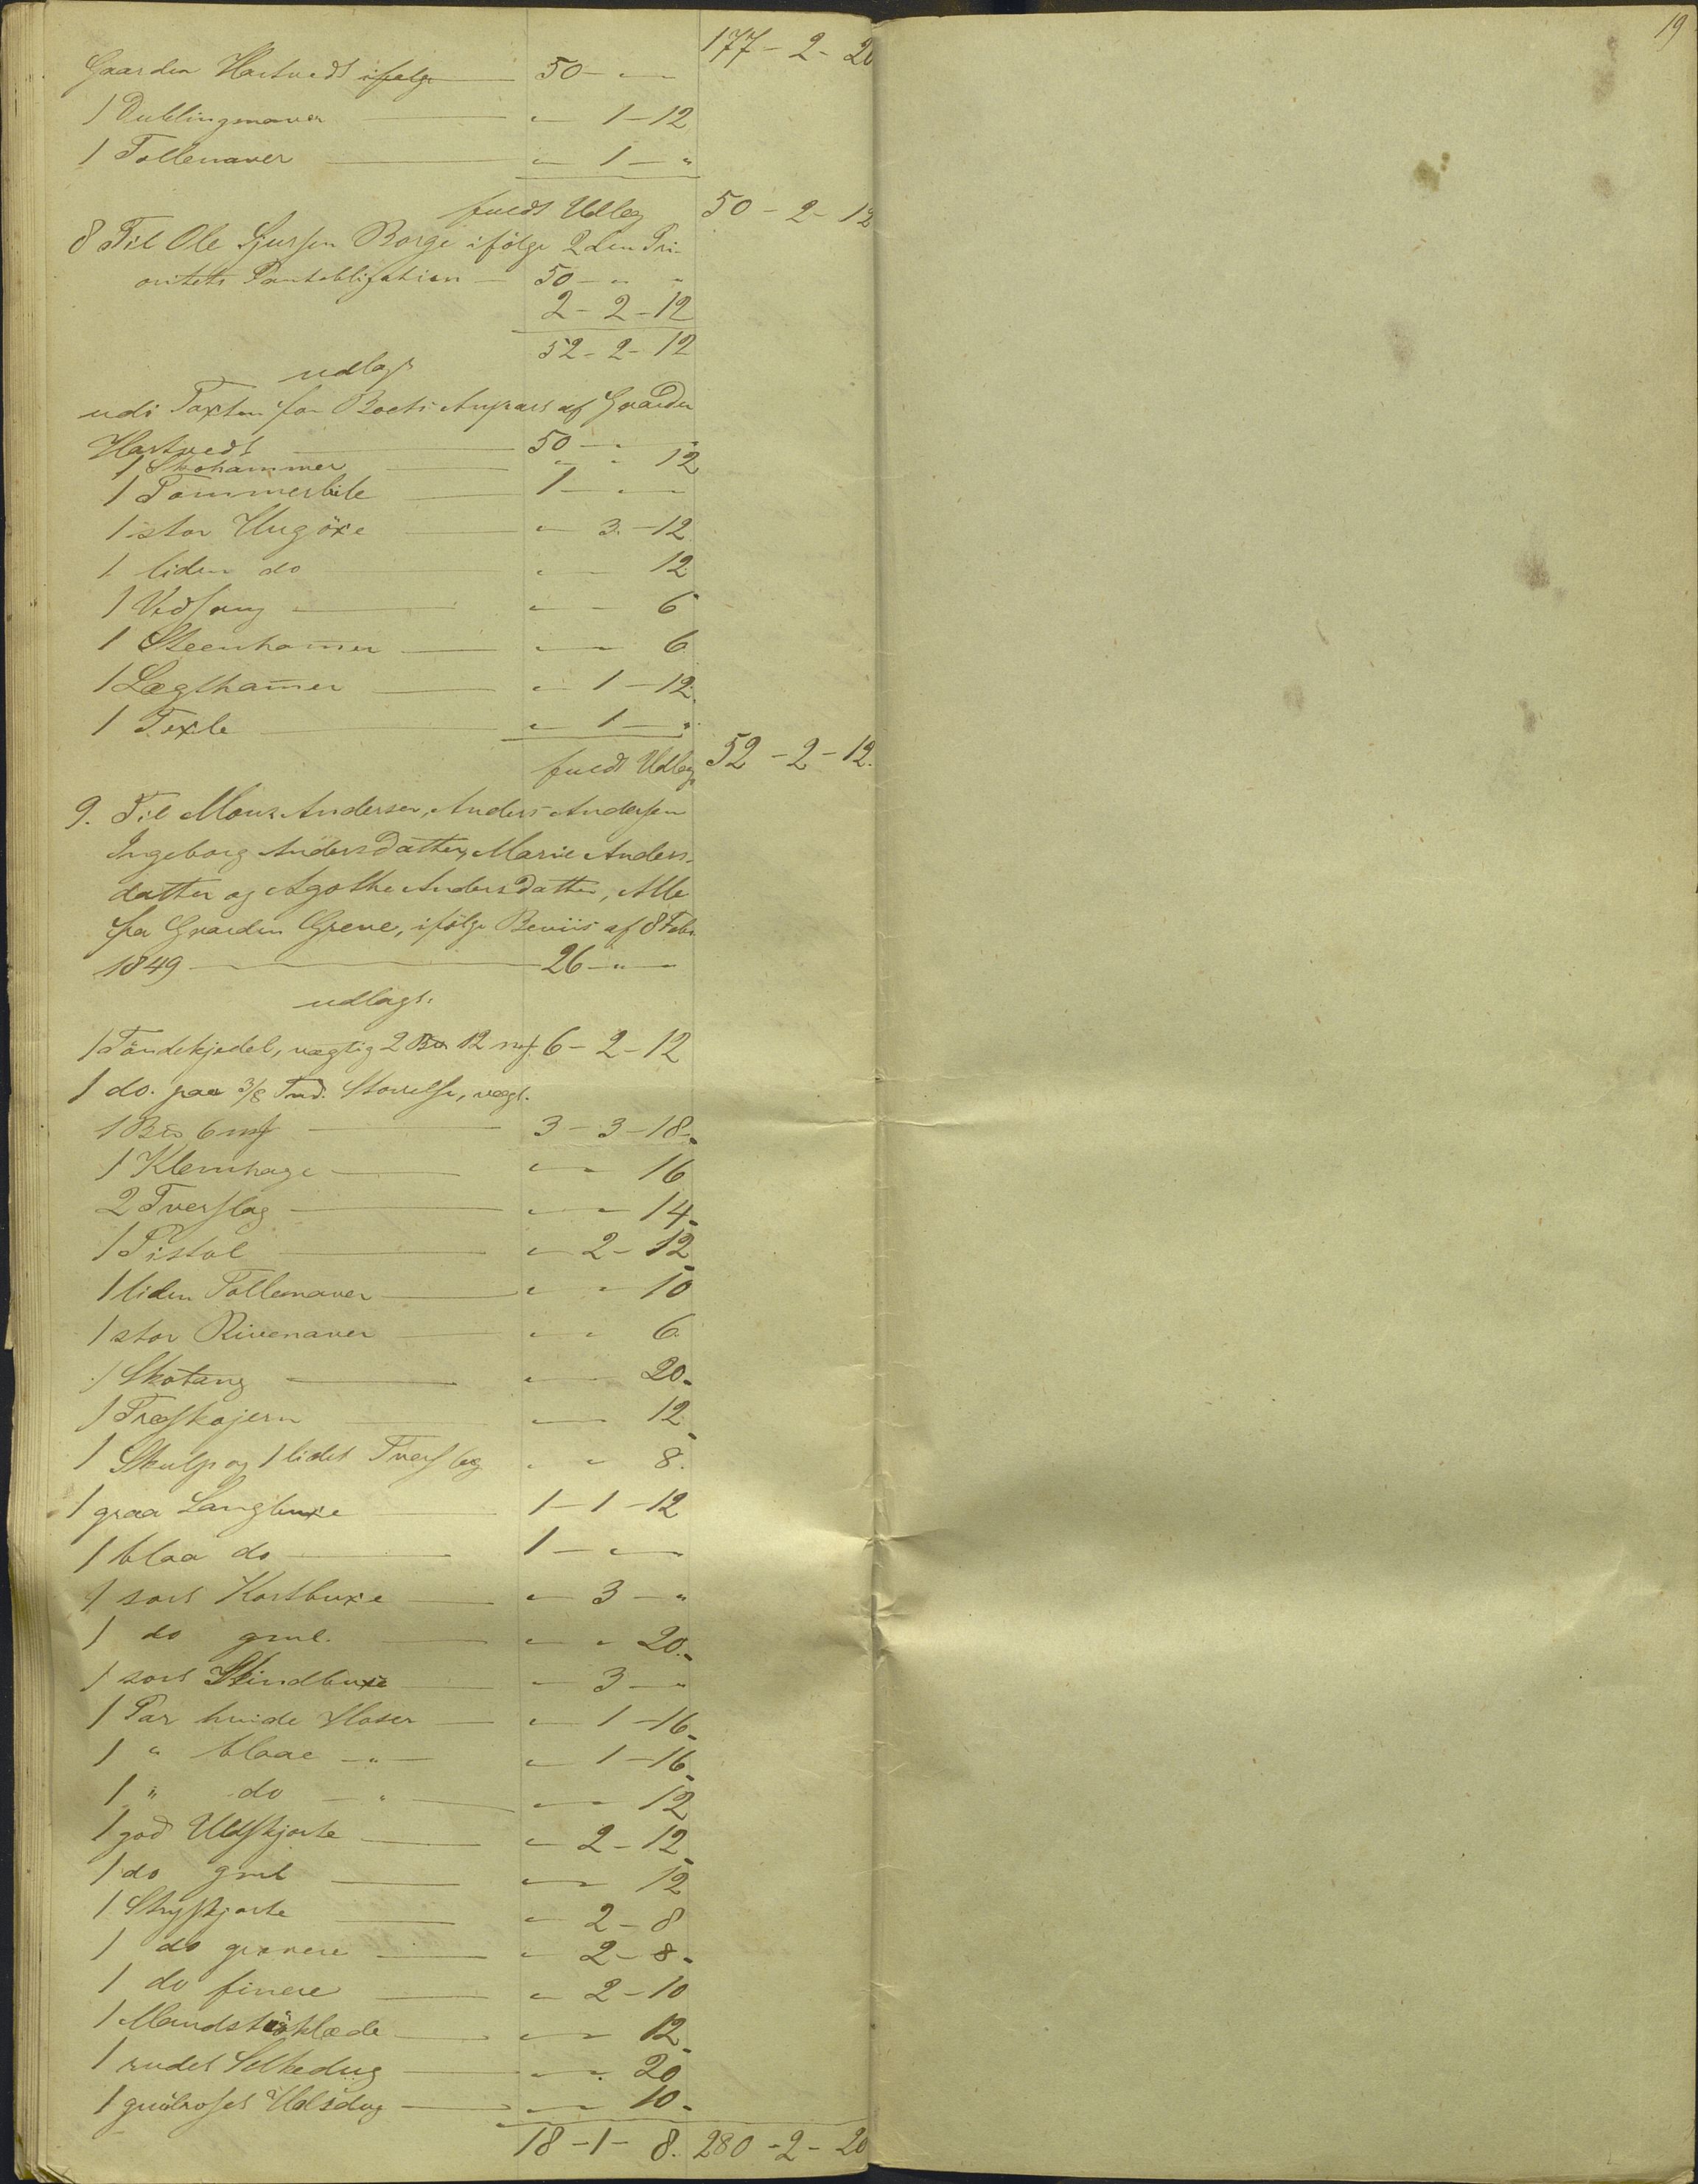 19
177 - 2 - 20
Gaarden Hartvedt ifølge 50 - " - "
1 Dublingsnaver " 1 - 12
1 Tollenaver " 1 - "
fuldt Udlæg 50 - 2 - 12
8 Til Ole Sjursen Borge ifölge 2den Pri-
oritets Pantobligation 50 - " - "
2 - 2 - 12
52 - 2 - 12
udlagt
udi Taxten for Boets Anpart af Gaarden
Hartvedt 50 - " - "
1 Skohammer " " 12
1 Tømmerbile 1 - " - "
1 stor Hugöxe " 3 - 12
1 liden do " - 12
1 Vedsaug " - 6
1 Steenham̄er " - 6
1 Lægtham̄er " 1 - 12
1 Texle " 1 - "
fuldt Udlæg 52 - 2 - 12.
9. Til Mons Andersen, Anders Andersen
Ingeborg Andersdatter, Marie Anders-
datter og Agothe Andersdatter, Alle
fra Gaarden Greve, ifölge Beviis af 8 Febr.
1849 26 - " - "
udlagt:
1 Töndekjedel, vægtig 2 Bd 12 mk 6 - 2 - 12
1 do. paa 3/8 Tnd. Störrelse, vægt.
1 Bd 6 mk 3 - 3 - 18
1 Klemhage " - 16
2 Tverslag " - 14
1 Pistol " 2 - 12
1 liden Tollenaver " " 10
1 stor Rivenaver " " 6
1 Skotang " - 20
1 Træskojern " - 12
1 Skulp og 1 lidet Tverslag " " 8.
1 graa Langbuxe 1 - 1 - 12
1 blaa do 1 - " - "
1 sort Kortbuxe " 3 - "
1 do gml. " " 20
1 sort Skindbuxe " 3 - "
1 Par hvide Hoser " 1 - 16
1 " blaae - " - " 1 - 16
1 " do - " - " - 12
1 god Uldskjorte " 2 - 12
1 do gml " - 12
1 Stryskjorte " 2 - 8
1 do grovere " 2 - 8
1 do finere " 2 - 10
1 Mandstörklæde " - 12
1 rudet Silkedug " - 20
1 guulroset Halsdug " - 10
18 - 1 - 8. 280 - 2 - 20